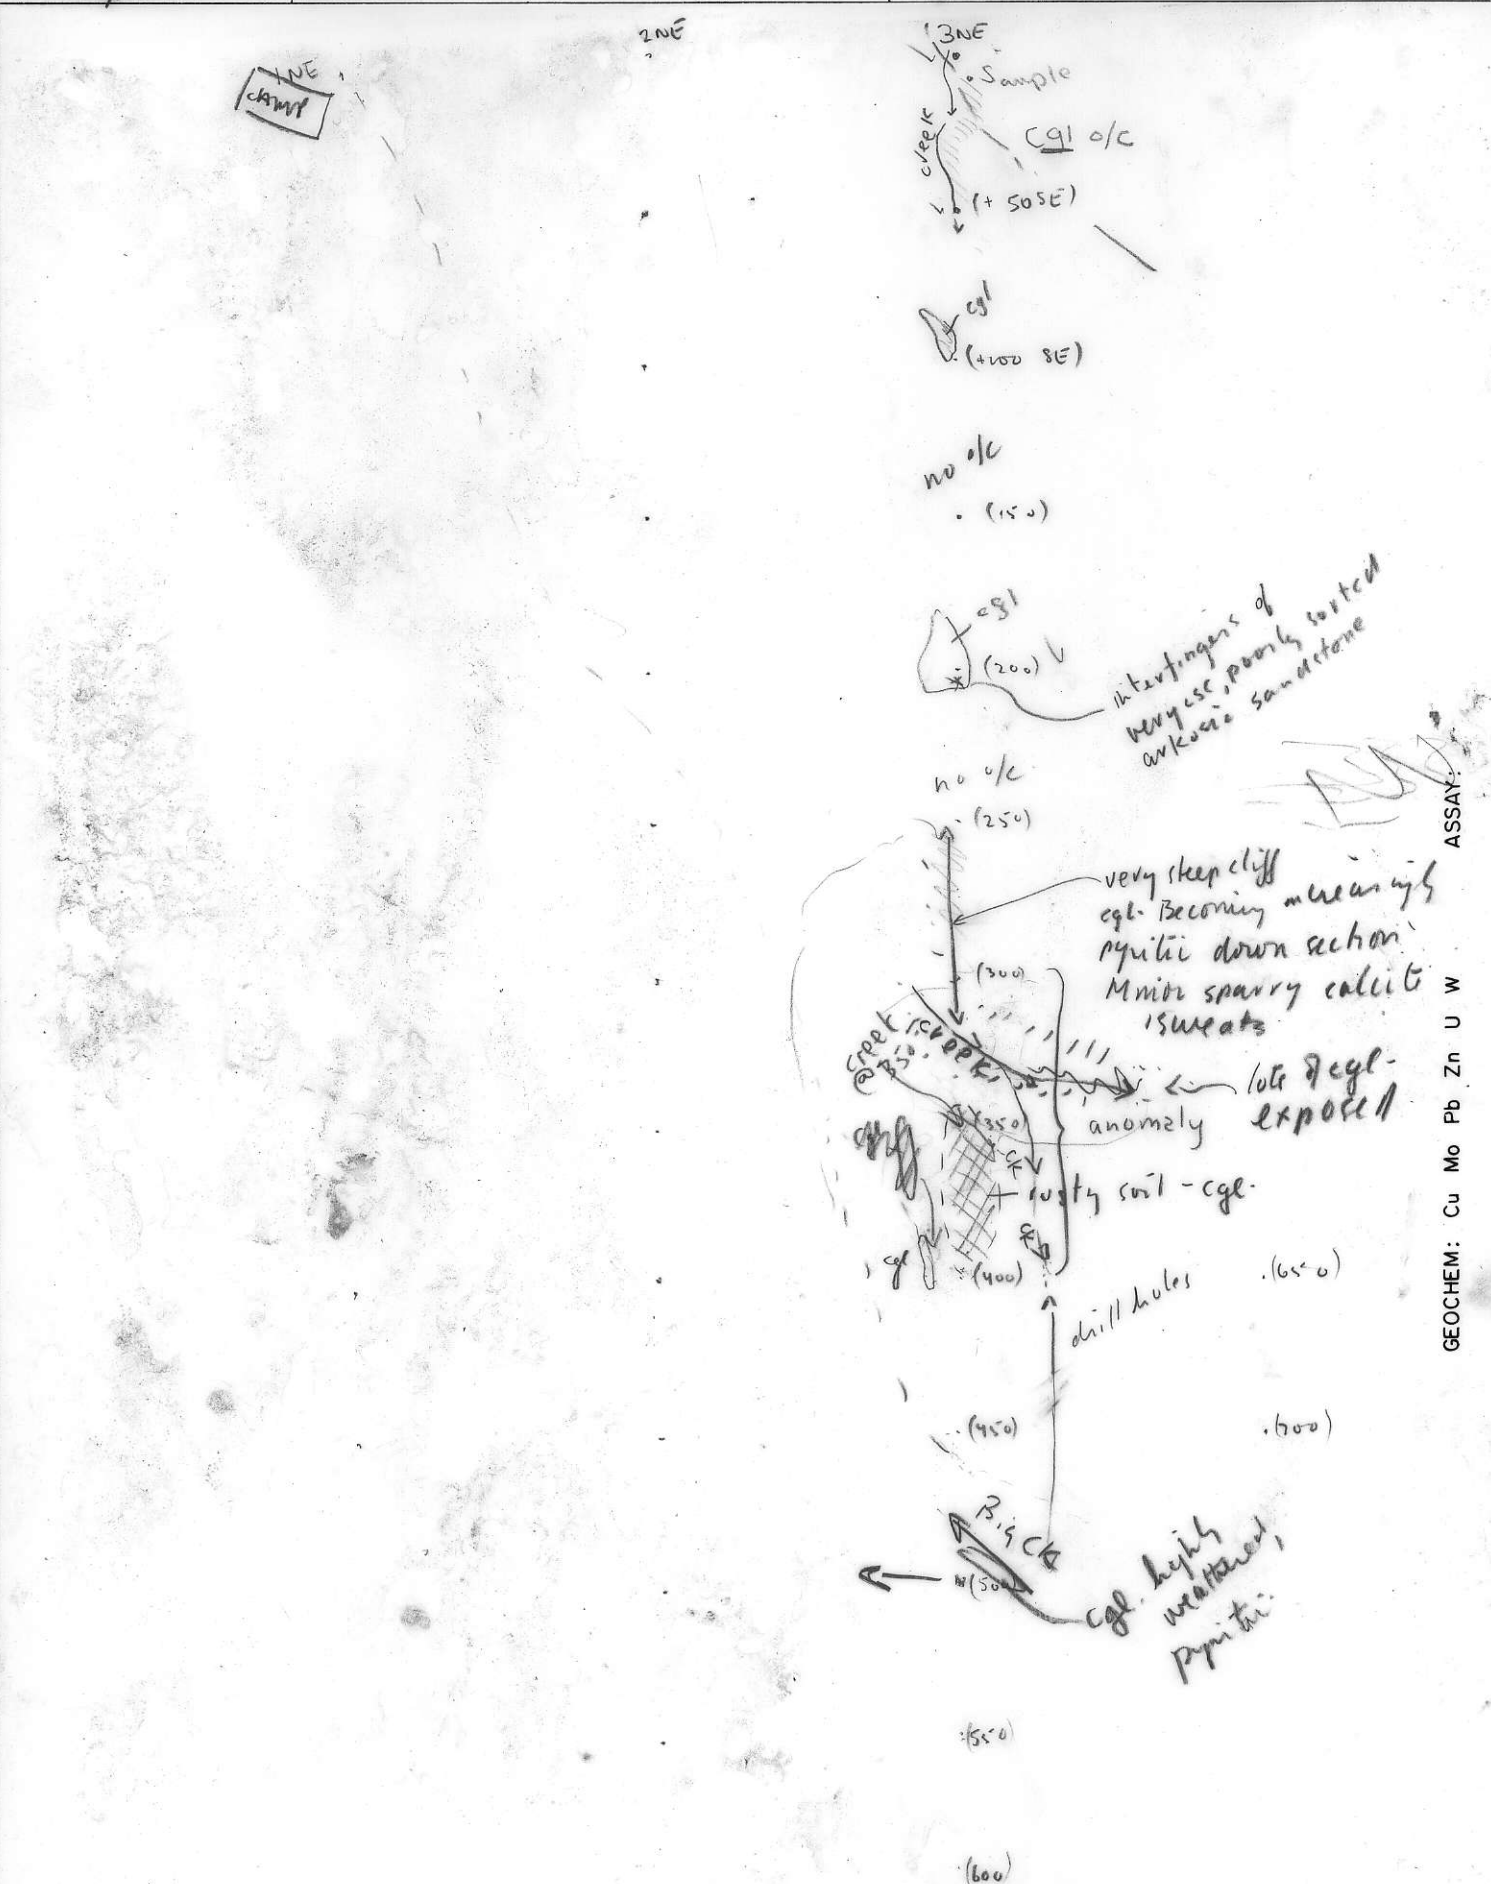 2NE
3NE
1NE
CAMP
Sample
creek
Cgl o/c
(+ 50SE)
cgl
(+100 SE)
no o/c
(150)
cgl
(200)
interfingers of
very cse, poorly sorted
arkosic sandstone
no o/c
(250)
very steep cliff
cgl. Becoming increasingly
pyritic down section
Minor sparry calcite
sweats
(300)
creek
@ 350
creek
lots of cgl.
exposed
(350)
anomaly
ck
rusty soil - cgl.
ck
cgl
(400)
(650)
drill holes
(450)
(700)
Big CK
(500)
cgl. highly
weathered,
pyritic
(550)
(600)
GEOCHEM: Cu Mo Pb Zn U W ASSAY: